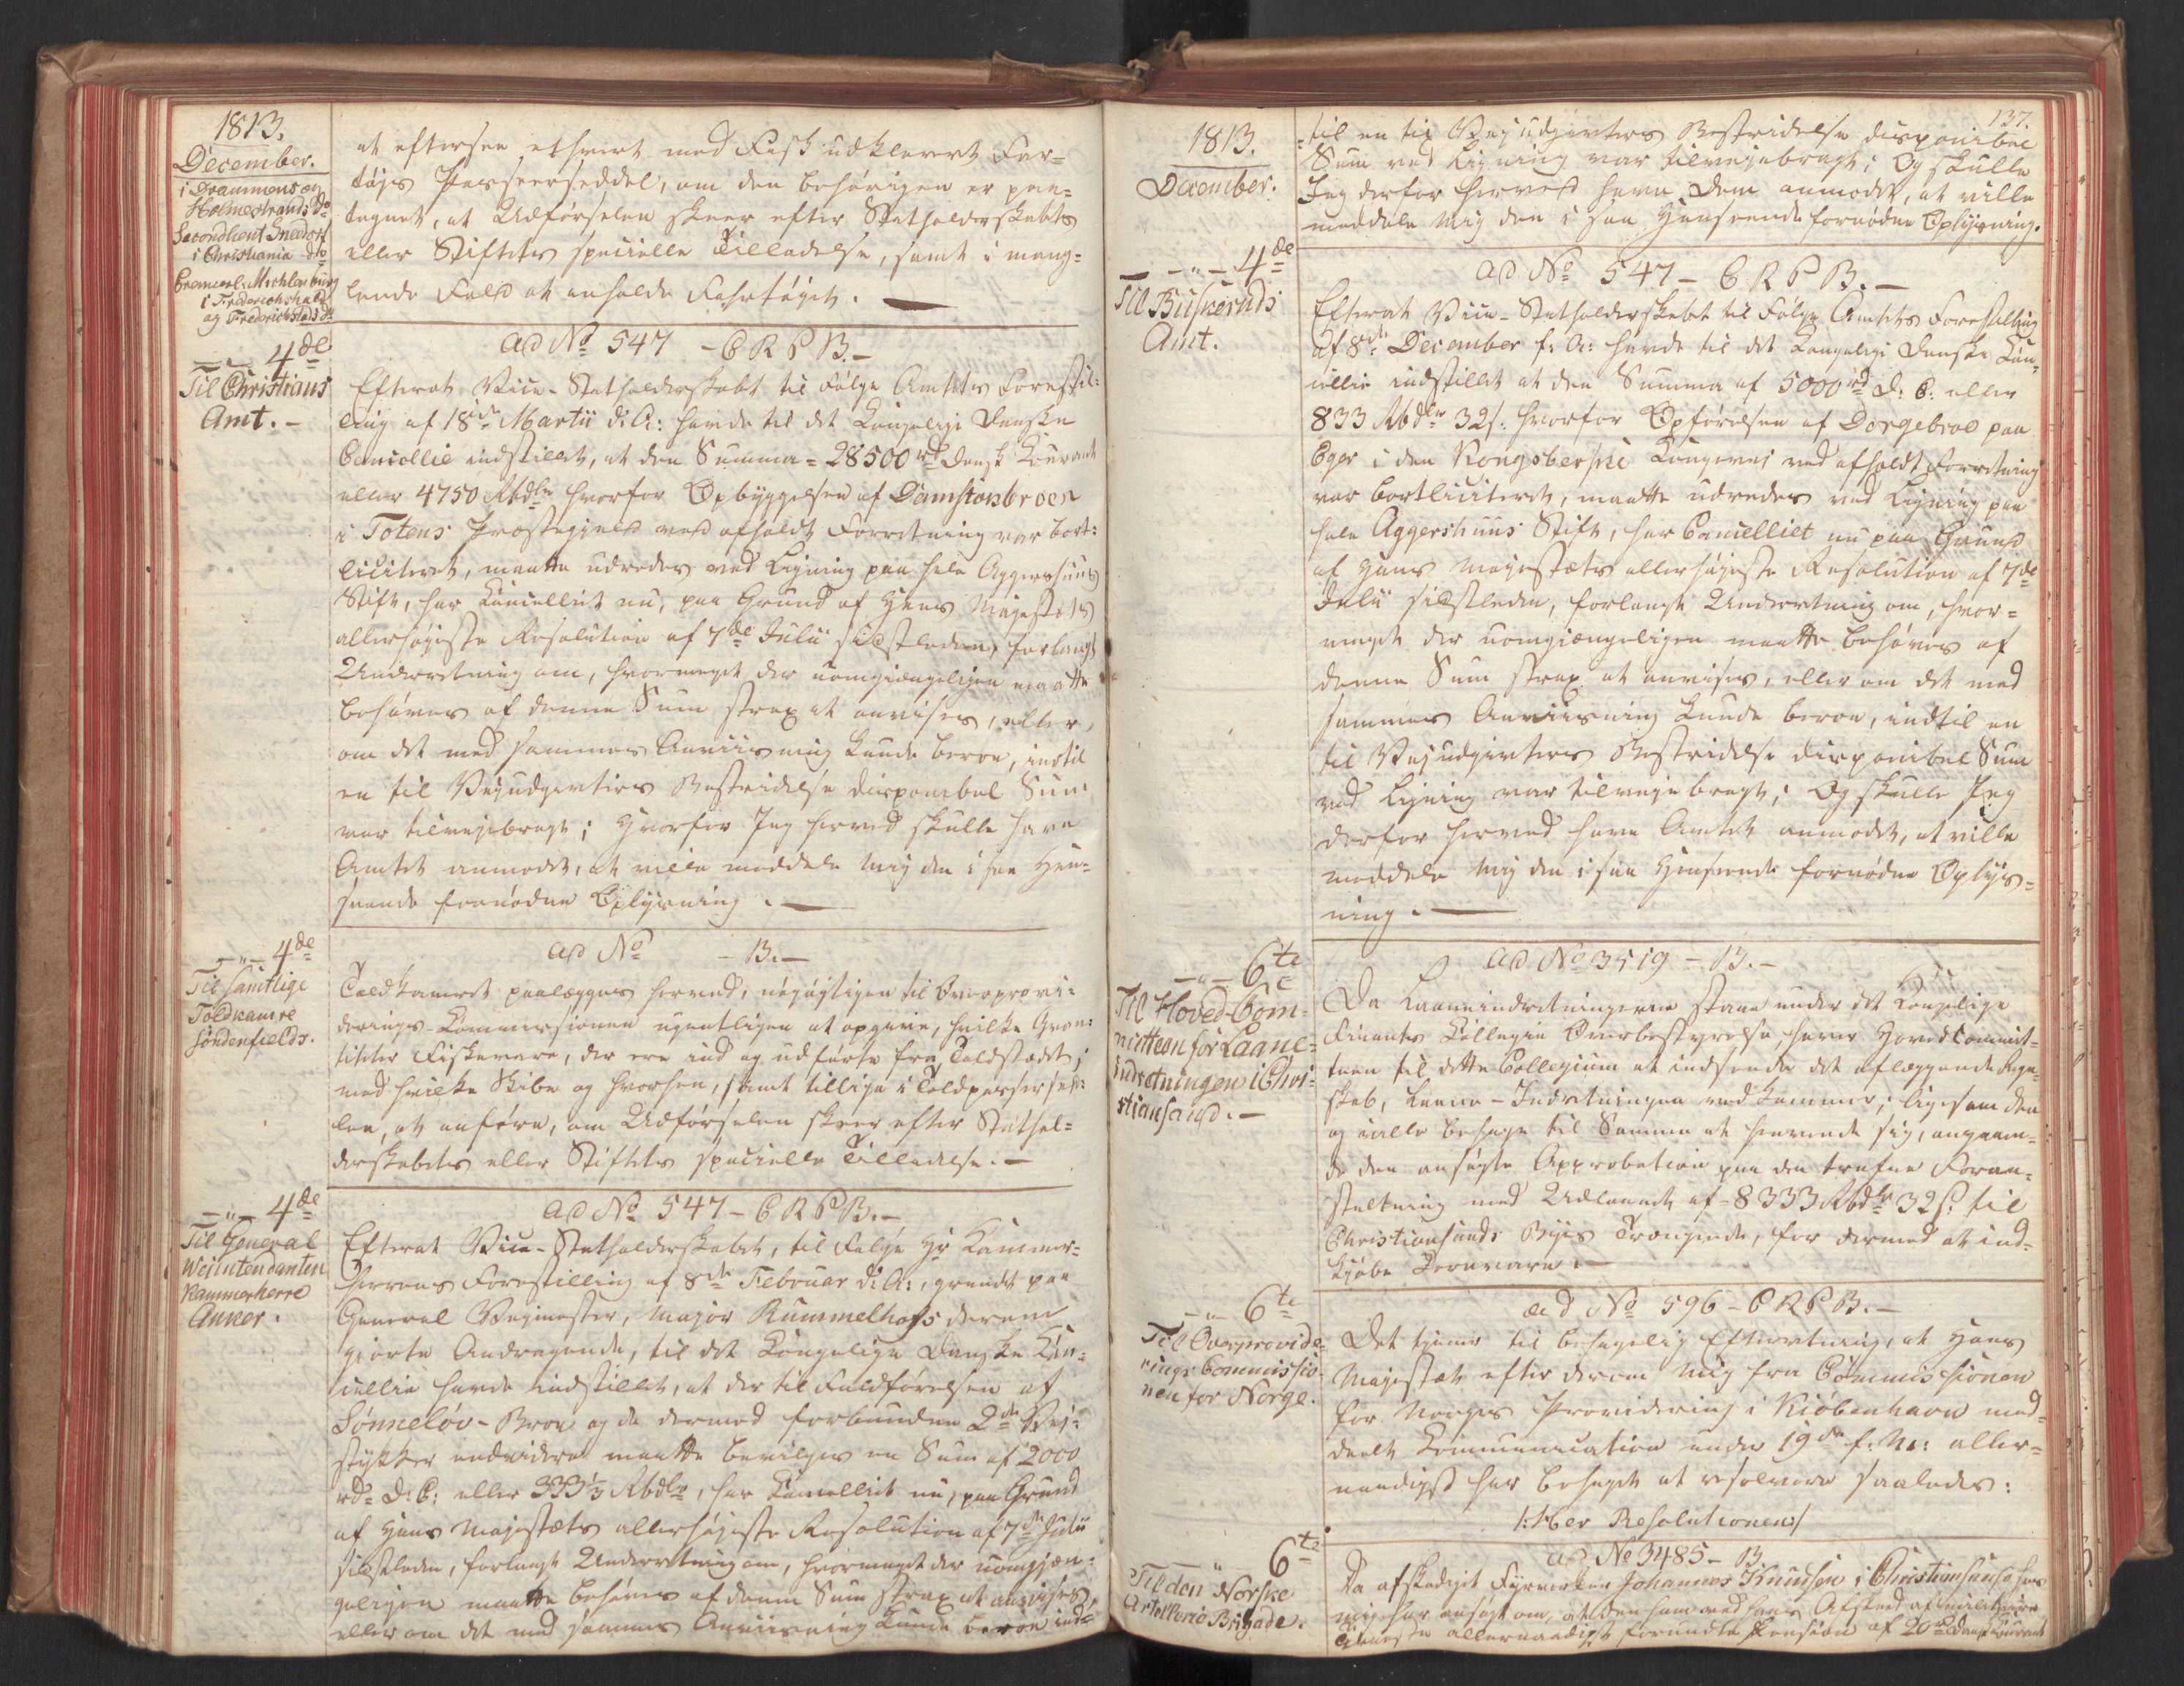 1813.
December.
i Drammens og
Holmestrands Do
Secondlieut Sneedorf
i Christiania do
Premierl. Mechlenburg
i Friderichshald
og Friderichstads do
at eftersee ethvert med Fisk udklareret Far=
tøjs Passeerseddel, om den behørigen er paa=
tegnet, at Udførselen skeer efter Statholderskabets
eller Stiftets specielle Tilladelse, samt i mang=
lende Fald at anholde Fahrtøjet.
— " — 4de
Til Christians
Amt. —
ad No 547 - C R P B. —
Efterat Vice-Statholderskabet til Følge Amtets Forestil=
ling af 18de Martii d: A: havde til det Kongelige Danske
Cancellie indstillet, at den Summa = 28500 rd Dansk Courant
eller 4750 Rbdlr hvorfor Opbyggelsen af Damstonbroen
i Totens Præstegield ved afholdt Forretning var bort=
liciteret, maatte udredes ved Ligning paa hele Aggershuus
Stift, har Cancelliet nu, paa Grund af Hans Majestæts
allerhøjeste Resolution af 7de Julii sidstleden, forlangt
Underretning om, hvormeget der uomgiængeligen maatte
behøves af denne Sum strax at anvises, eller,
om det med sammes Anviisning kunde beroe, indtil
en til Vejudgivters Bestridelse disponibel Sum
var tilvejebragt; Hvorfor Jeg herved skulle have
Amtet anmodet, at ville meddele mig den i saa Hen=
seende fornødne Oplysning. —
— " — 4de
Til samtlige
Toldkamre
søndenfields.
ad No - B. —
Toldkamret paalægges herved, nøjagtigen til Overprovi=
derings-Commissionen ugentligen at opgive, hvilke Qvan=
titeter Fiskevare, der ere ind og udførte fra Toldstædet,
med hvilke Skibe og hvorhen, samt tillige i Toldpasserse=
len, at anføre, om Udførselen skeer efter Stathol=
derskabets eller Stiftets specielle Tilladelse. —
— " — 4de
Til General
Vejintendanten
Kammerherre
Anker.
ad No 547 - C R P B. —
Efterat Vice-Statholderskabet, til Følge Hr Kammer=
herrens Forestilling af 8de Februar d: A:, grundet paa
General Vejmester, Major Rummelhofs derom
giorte Andragende, til det Kongelige Danske Can=
cellie havde indstillet, at der til Fuldførelsen af
Sønneløv-Broe og de dermed forbundne 2de Vei=
stykker endvidere maatte bevilges en Sum af 2000
rd D: C: eller 333⅓ Rbdlr, har Cancelliet nu, paa Grund
af Hans Majestæts allerhøjeste Resolution af 7de Julii
sidstleden, forlangt Underretning om, hvormeget der uomgjæn=
geligen maatte behøves af denne Sum strax at anvises,
eller om det med sammes Anviisning kunde beroe ind=
137.
1813.
December.
=til en til Vejudgivters Bestridelse disponibel
Sum ved Ligning var tilvejebragt; Og skulle
Jeg derfor herved have Dem anmodet, at ville
meddele mig den i saa Henseende fornødne Oplysning.
— " — 4de
Til Buskeruds
Amt.
ad No 547 - C R P B. —
Efterat Vice-Statholderskabet til Følge Amtets Forestilling
af 8de December f: A: havde til det Kongelige Danske Can=
cellie indstillet at den Summa af 5000 rd D: C: eller
833 Rbdlr 32 s: hvorfor Opførelsen af Dorgebroe paa
Eger i den Kongsbergske Kongevej ved afholdt Forretning
var bortliciteret, maatte udredes ved Ligning paa
hele Aggershuus Stift, har Cancelliet nu paa Grund
af Hans Majestæts allerhøjeste Resolution af 7de
Julii sidstleden, forlangt Underretning om, hvor=
meget der uomgiængeligen maatte behøves af
denne Sum strax at anvises, eller om det med
sammes Anviisning kunde beroe, indtil en
til Vejudgivters Bestridelse disponibel Sum
ved Ligning var tilvejebragt; Og skulle Jeg
derfor herved have Amtet anmodet, at ville
meddele mig den i saa Henseende fornødne Oplys=
ning. —
— " — 6te
Til Hoved-Com=
mitteen for Laane=
Indretningen i Chri=
stiansand. —
ad No 3519 - B. —
Da Laaneindretningerne staae under det Kongelige
Finants Collegii Overbestyrelse, haver Hoved Commit=
teen til dette Collegium at indsende det aflæggende Regn=
skab, Laane-Indretningen vedkommer; ligesom den
og ville behage til Samme at henvende sig, angaaen=
de den ansøgte Approbation paa den trufne Foran=
staltning med Udlaanet af 8333 Rbdlr 32 s: til
Christiansands Byes Trængende, for dermed at ind=
kjøbe Kornvare. —
— " — 6te
Til Overprovide=
rings Commissio=
nen for Norge.
ad No 596 - C R P B. —
Det tjener til behagelig Efterretning, at Hans
Majestæt efter derom mig fra Commissionen
for Norges Providering i Kiøbenhavn med=
deelt Communication under 19de f: M: aller=
naadigst har behaget at resolvere saaledes:
/: Her Resolutionen :/
— " — 6te
Til den Norske
Artellerie Brigade.
ad No 3485 - B.
Da afskediget Fyrverker Johannes Knudsen i Christiansand hos
mig har ansøgt om, at den ham ved hans Afsked af militaire
Tieneste allernaadigst forundte Pension af 20 rd Dansk Courant